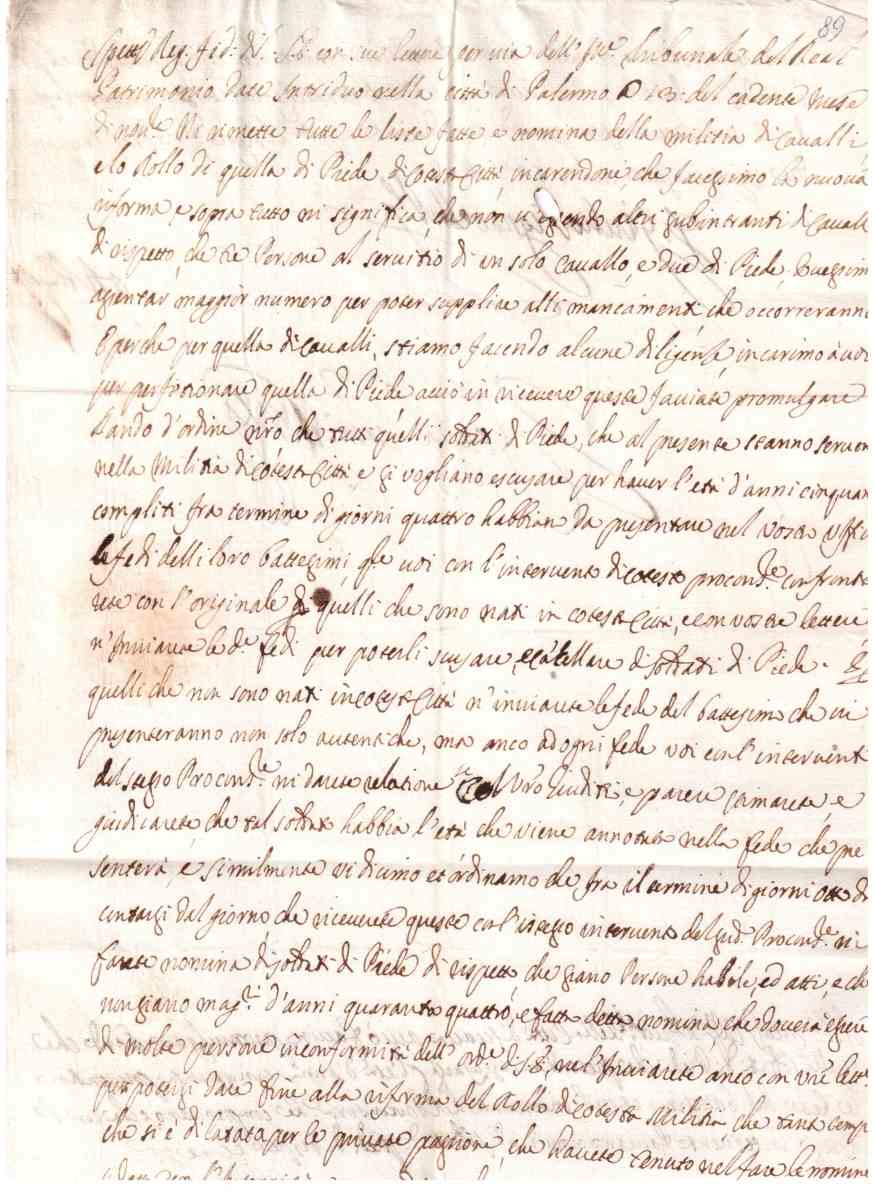 89
Spett. Reg. fid. di S. E. con sue lettere per via dell' Tribunale del Real
Patrimonio date Intriduo nella città di Palermo a 13 del cadente mese
di nov.e Ni rimette tutte le liste fatte e nomina della militia di Cavalli
e lo Rollo di quella di Piede di cotesta Città, incaricandoni, che facessimo la nuova
riforma e sopra tutto ni significa, che non u essendo altri subintranti di Cavall
di rispetto, che tre Persone al servitio di un solo cavallo, e due di Piede,
assentar maggior numero per poter supplire alli mancamenti che occorreranno
E perche per quella di Cavalli, stiamo facendo alcune diligenze incarimo à voi
per perfetionare quella di Piede acciò in ricevere questa facciate promulgare
Bando d'ordine nro che tutti quelli soldati di Piede, che al presente stanno serven
nella Militia di cotesta Città e si vogliano escusare per haver l'età d'anni cinquan
compliti fra termine di giorni quattro habbian da presentare nel vostro offi
le fedi delli loro battesimi q.le voi con l'intervento di cotesto procons.re confronta
rete con l'originale di quelli che sono nati in cotesta Città, e con vostre lettere
n'Inviarete le d.e fedi per poterli scusare, e cancellare di soldati di Piede. E
quelli che non sono nati in cotesta Città n'inviarete le fede del battesimo che vi
presenteranno non solo autentiche, ma anco ad ogni fede voi con l'intervento
del stesso Procons.re ni darete relatione se col vro Giuditio, e parere stimarete, e
giudicarete, che tal soldato habbia l'età che viene annotata nella fede che pre
senterà, e similmente vi dicimo et ordinamo che fra il termine di giorni otto da
contarsi dal giorno, che riceverete questa con l'istesso intervento del sud.o Procons.re ni
farete nomina di soldati di Piede di rispetto, che siano Persone habile, ed atti, e che
non siano mag.ri d'anni quaranta quattro, e fatta detta nomina, che doverà essere
di molte persone in conformità dell' ord.e di S. E, nel' Inviarete anco con vre lett.e
per potersi dare fine alla riforma del Rollo di cotesta Militia, che tanto temp
che si è dilatata per le private passione, che havete tenuto nel fare le nomine